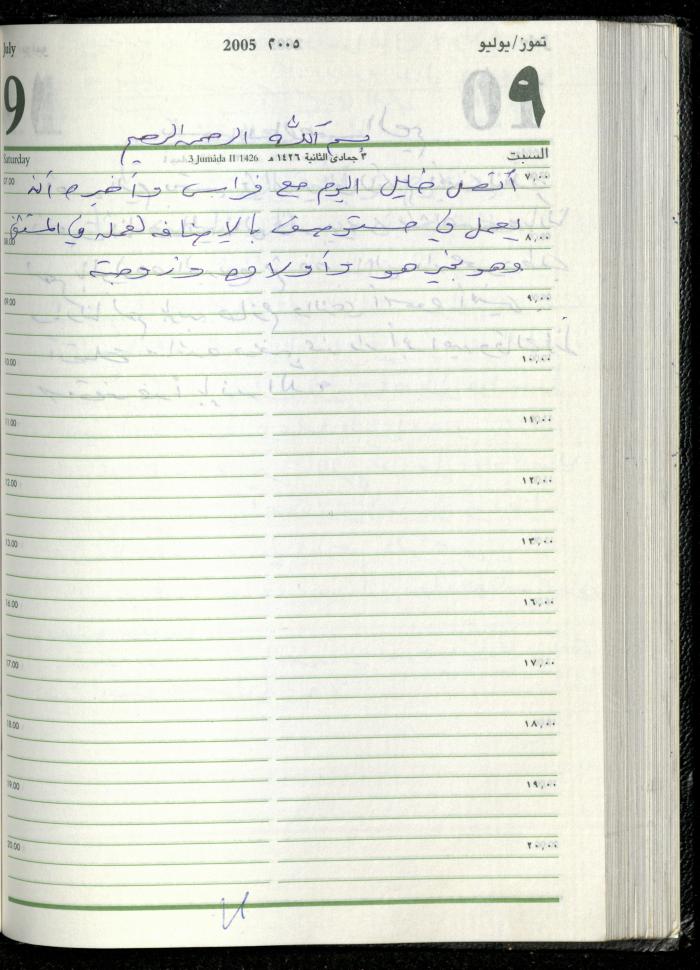 July
2005 ٢٠٠٥
تموز/يوليو
9
٩
بسم الله الرحمن الرحيم
Saturday
3 Jumâda II 1426 ٣ جمادى الثانية ١٤٢٦ هـ
السبت
07.00 ٧,٠٠
أتصل خليل اليوم مع فراس وأخبره أنه
يعمل في مستوصف بالإضافه لعمله في المستشفى
08.00 ٨,٠٠
وهو بخير هو وأولاده وزوجته
09.00 ٩,٠٠
10.00 ١٠,٠٠
11.00 ١١,٠٠
12.00 ١٢,٠٠
13.00 ١٣,٠٠
16.00 ١٦,٠٠
17.00 ١٧,٠٠
18.00 ١٨,٠٠
19.00 ١٩,٠٠
20.00 ٢٠,٠٠